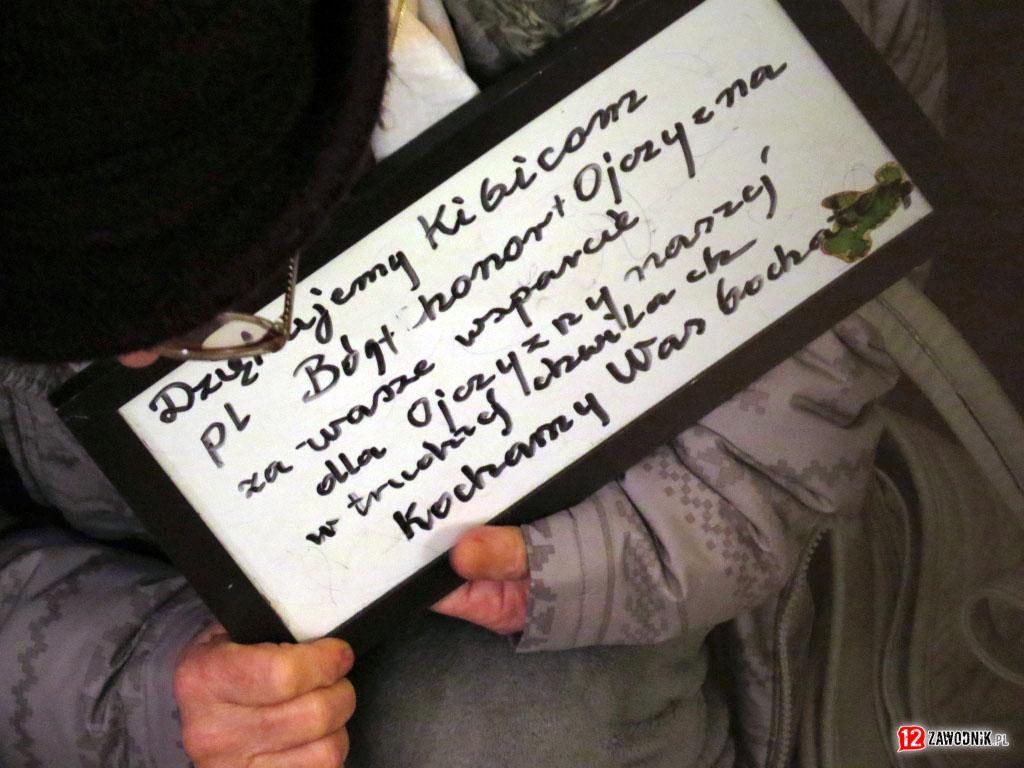 Dziękujemy Kibicom
pl Bóg + honor + Ojczyzna
za wasze wsparcie
dla Ojczyzny naszej
w trudnej chwilach
Kochamy Was
12 ZAWODNIK.PL